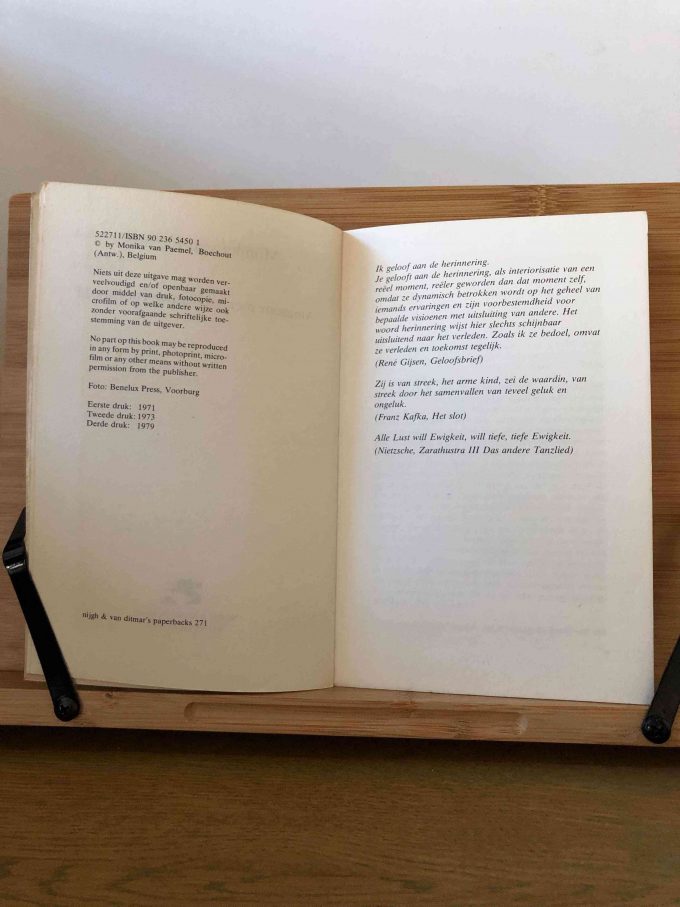 522711/ISBN 90 236 5450 1
© by Monika van Paemel, Boechout
(Antw.), Belgium
Niets uit deze uitgave mag worden ver-
veelvoudigd en/of openbaar gemaakt
door middel van druk, fotocopie, mi-
crofilm of op welke andere wijze ook
zonder voorafgaande schrittelijke toe-
stemming van de uitgever.
No part op this book may be reproduced
in any form by print, photoprint, micro-
film or any other means without written
permission from the publisher.
Foto: Benelux Press, Voorburg
Eerste druk: 1971
Tweede druk: 1973
Derde druk: 1979
nijgh & van ditmar's paperbacks 271
Ik geloof aan de herinnering.
Je gelooft aan de herinnering, als interiorisatie van een
reëel moment, reëler geworden dan dat moment zelf,
omdat ze dynamisch betrokken wordt op het geheel van
iemands ervaringen en zijn voorbestemdheid voor
bepaalde visioenen met uitsluiting van andere. Het
woord herinnering wijst hier slechts schijnbaar
uitsluitend naar het verleden. Zoals ik ze bedoel, omvat
ze verleden en toekomst tegelijk.
(René Gijsen, Geloofsbrief)
Zij is van streek, het arme kind, zei de waardin, van
streek door het samenvallen van teveel geluk en
ongeluk.
(Franz Kafka, Het slot)
Alle Lust will Ewigkeit, will tiefe, tiefe Ewigkeit.
(Nietzsche, Zarathustra III Das andere Tanzlied)